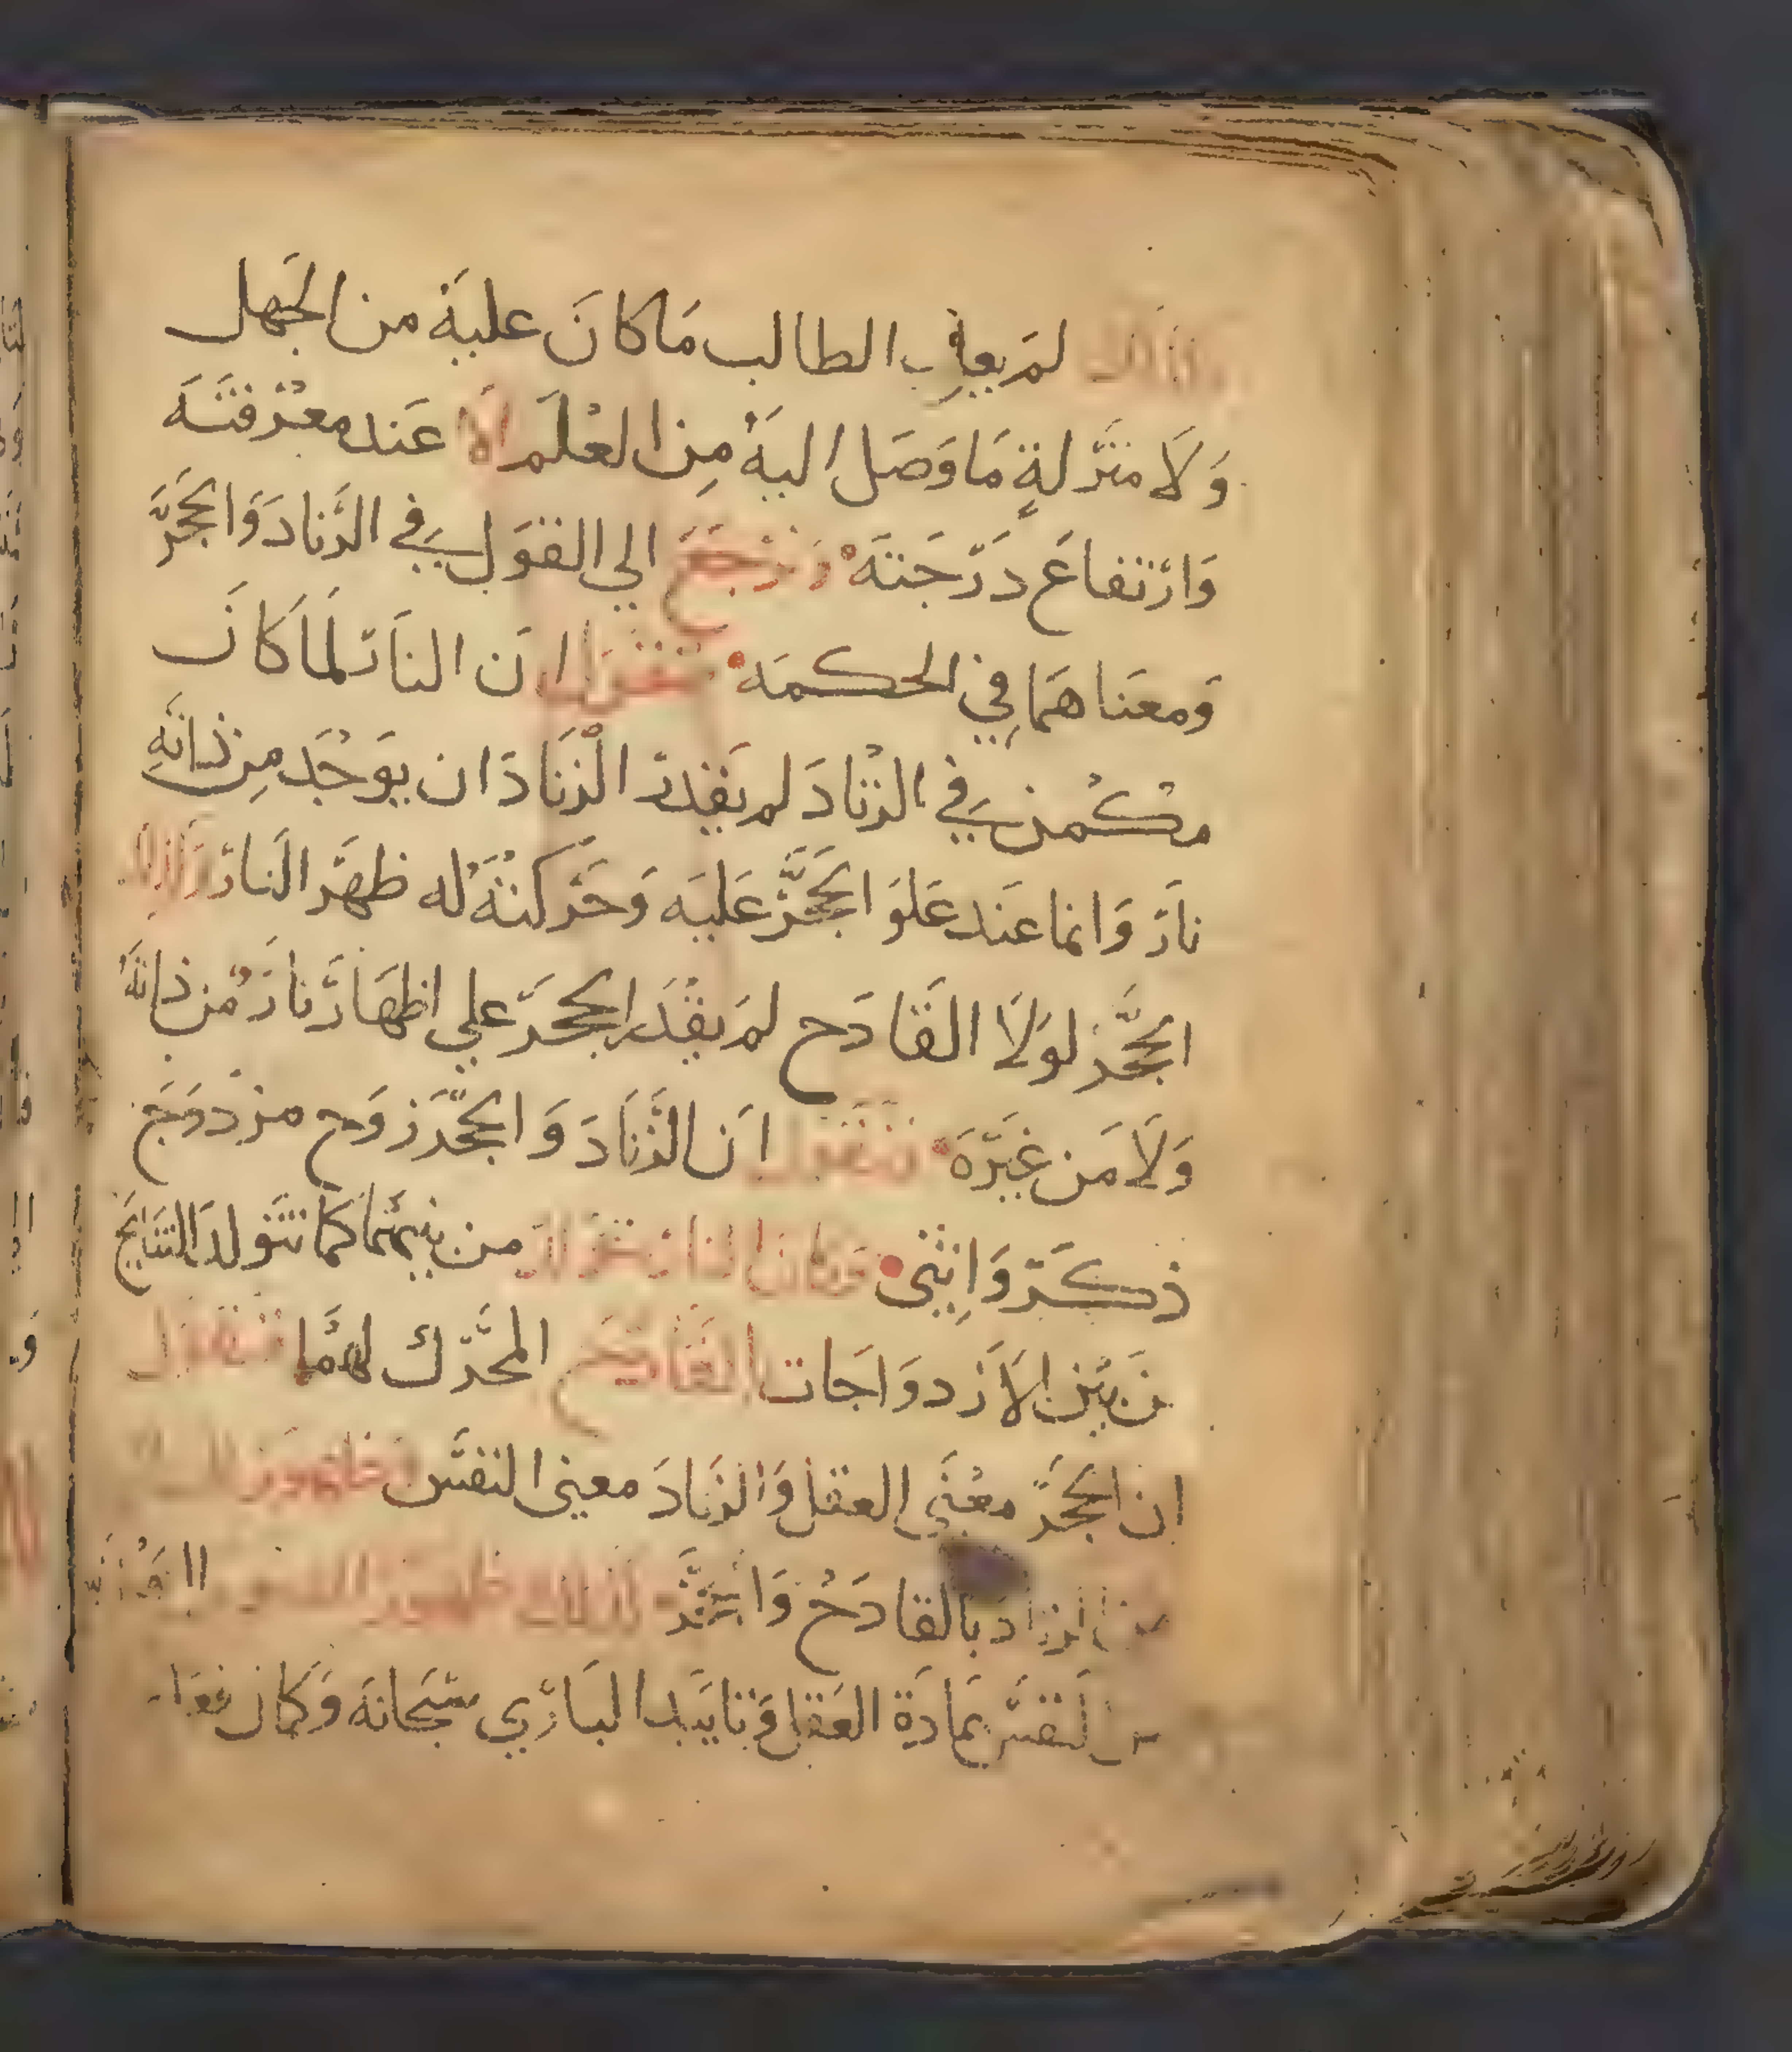 لم يعاين الطالب ما كان عليه من الجهل
ولا منزلة ما وصل اليه من العلم الا عند معرفته
وارتفاع درجته ونرجع الي القول في الزناد والحجر
ومعناهما في الحكمه فنقول ان النار لما كان
مكمن في الزناد لم يقدر الزناد ان يوجد من ذاته
نار وانما عند علو الحجر عليه وحركته له ظهر النار وكذلك
الحجر لولا القادح لم يقدر الحجر علي اظهار نار من ذاته
ولا من غيره فنقول ان الزناد والحجر زوج مزدوج
ذكر وانثى فكان النار يتولد من بينهما كما تتولد النتايج
من بين الازدواجات القادح المحرك لهما فنقول
ان الحجر معنى العقل والزناد معنى النفس فظهور
من الزناد بالقادح والحجر كذلك ظهور
من النفس بمادة العقل وتاييد الباري سبحانه وكان